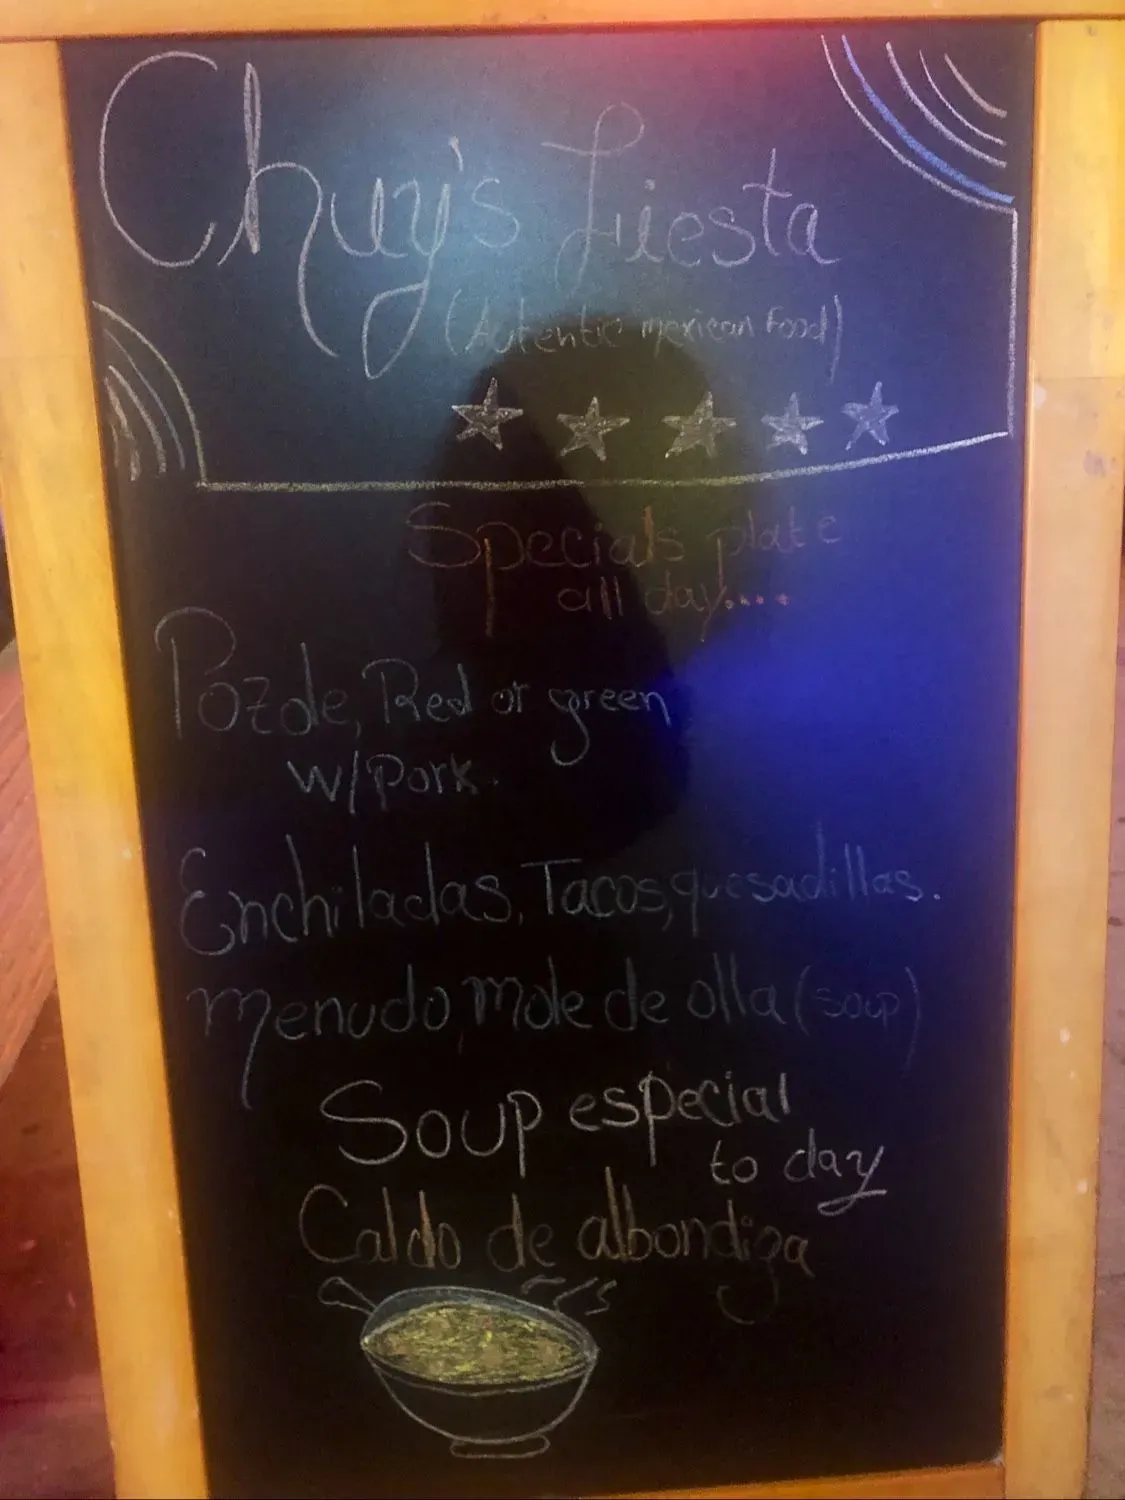 Chuy's Fiesta
(Autentic mexican Food)
Specials plate
all day....
Pozole, Red or green
w/Pork.
Enchiladas, Tacos, quesadillas.
menudo, Mole de olla (soup)
Soup especial
to day
Caldo de albondiga